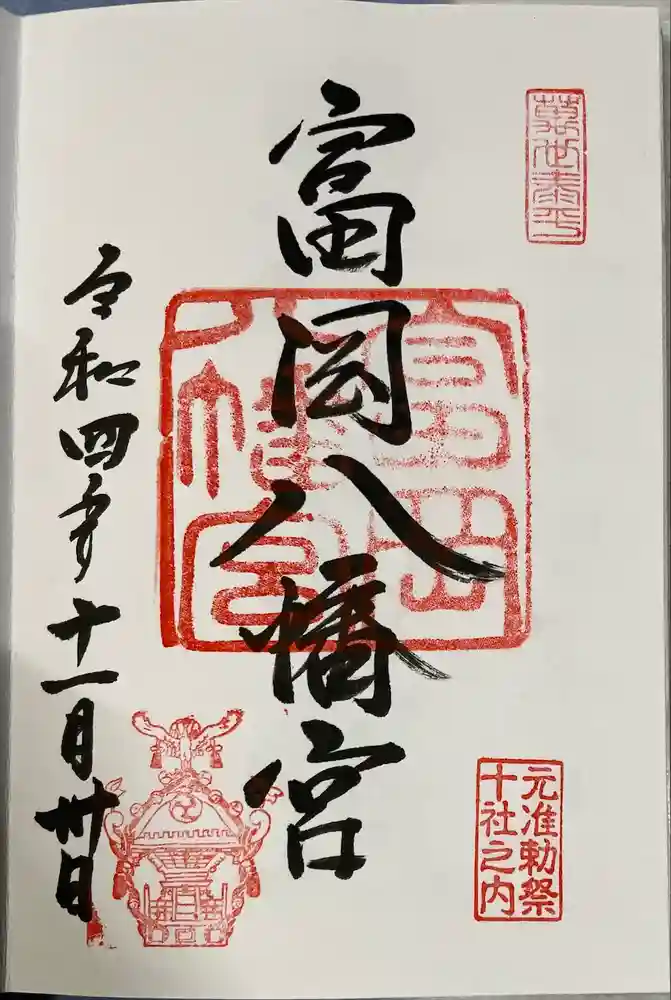 嘉世泰平
元准勅祭
十社之内
富岡八幡宮
富岡
八幡宮
令和四年十一月卅日